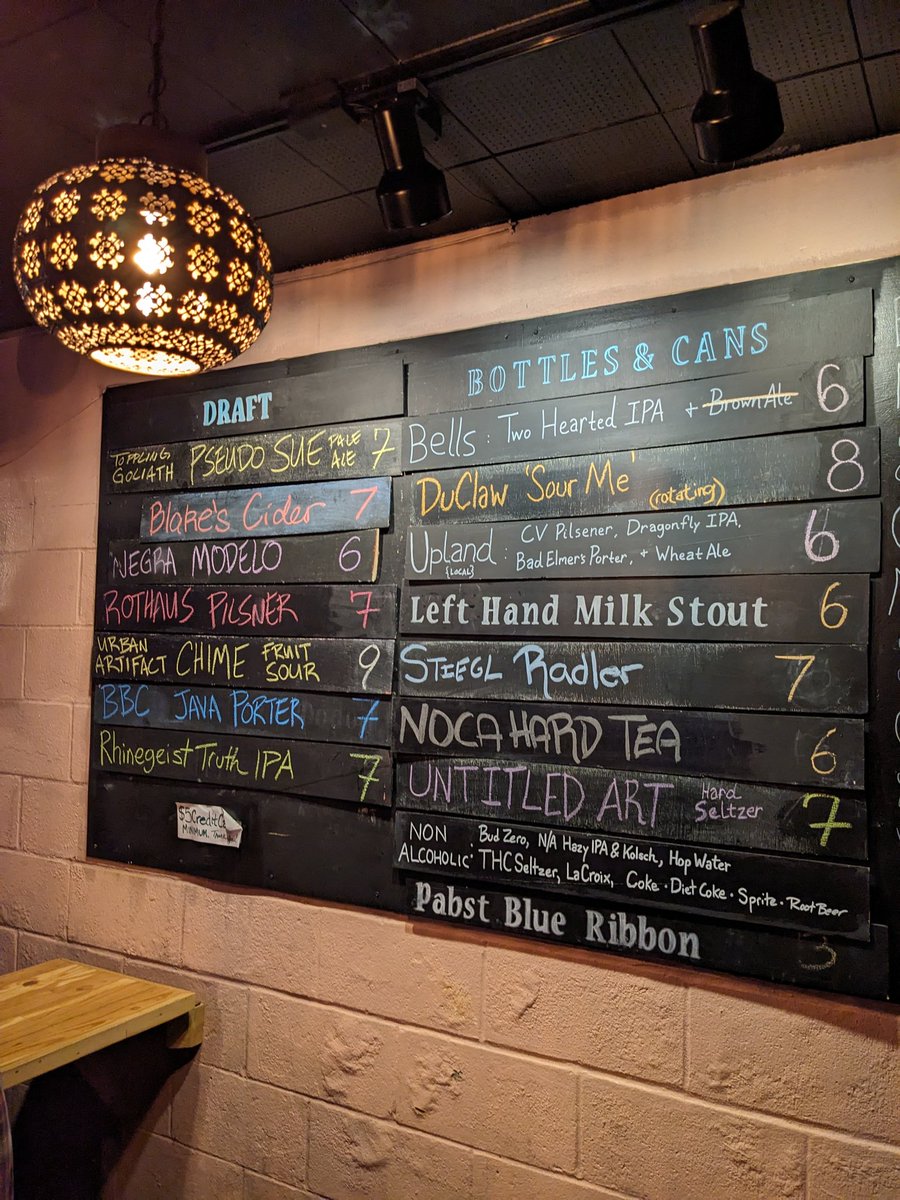 DRAFT
TOPPLING GOLIATH PSEUDO SUE PALE ALE 7
Blake's Cider 7
NEGRA MODELO 6
ROTHAUS PILSNER 7
URBAN ARTIFACT CHIME FRUIT SOUR 9
BBC JAVA PORTER 7
Rhinegeist Truth IPA 7
$5 Credit Cd
MINIMUM
BOTTLES & CANS
Bells: Two Hearted IPA + Brown Ale 6
DuClaw 'Sour Me' (rotating) 8
Upland {LOCAL} : CV Pilsener, Dragonfly IPA,
Bad Elmer's Porter, + Wheat Ale 6
Left Hand Milk Stout 6
STIEGL Radler 7
NOCA HARD TEA 6
UNTITLED ART Hard Seltzer 7
NON ALCOHOLIC: Bud Zero, N/A Hazy IPA & Kolsch, Hop Water
THC Seltzer, LaCroix, Coke · Diet Coke · Sprite · Root Beer
Pabst Blue Ribbon 3